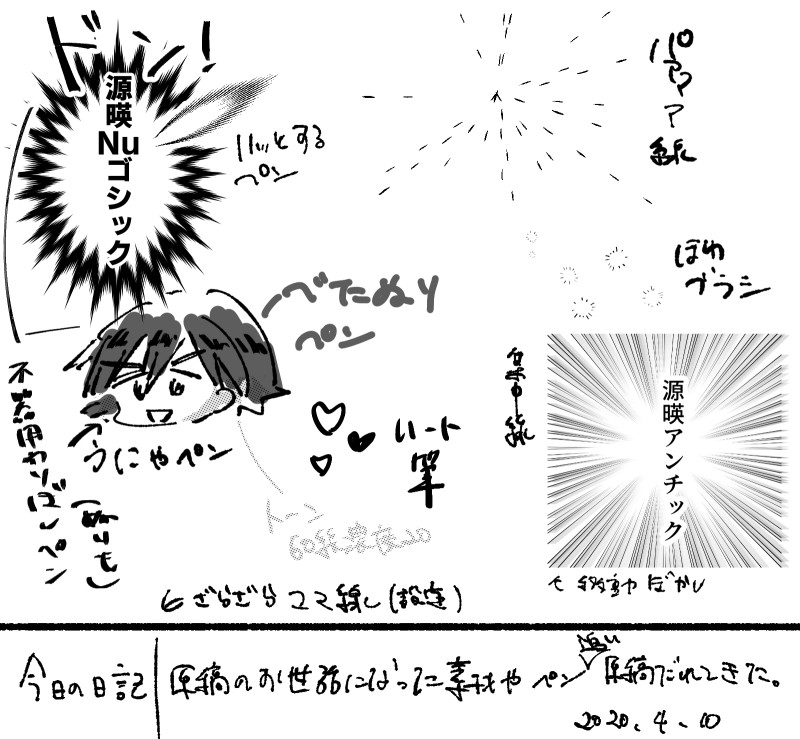 ドン!
源暎Nuゴシック
ハッとする
ペン
パァァァ
線
ほわ
ブラシ
べたぬり
ペン
集中線
源暎アンチック
不器用カリグラペン
(ぬりも)
うにゃペン
ハート
筆
トーン
60線濃度20
←ざらざらコマ線(設定)
↑移動ぼかし
今日の日記
原稿のお世話になった素材やペン
原稿だれてきた。
2020.4.10